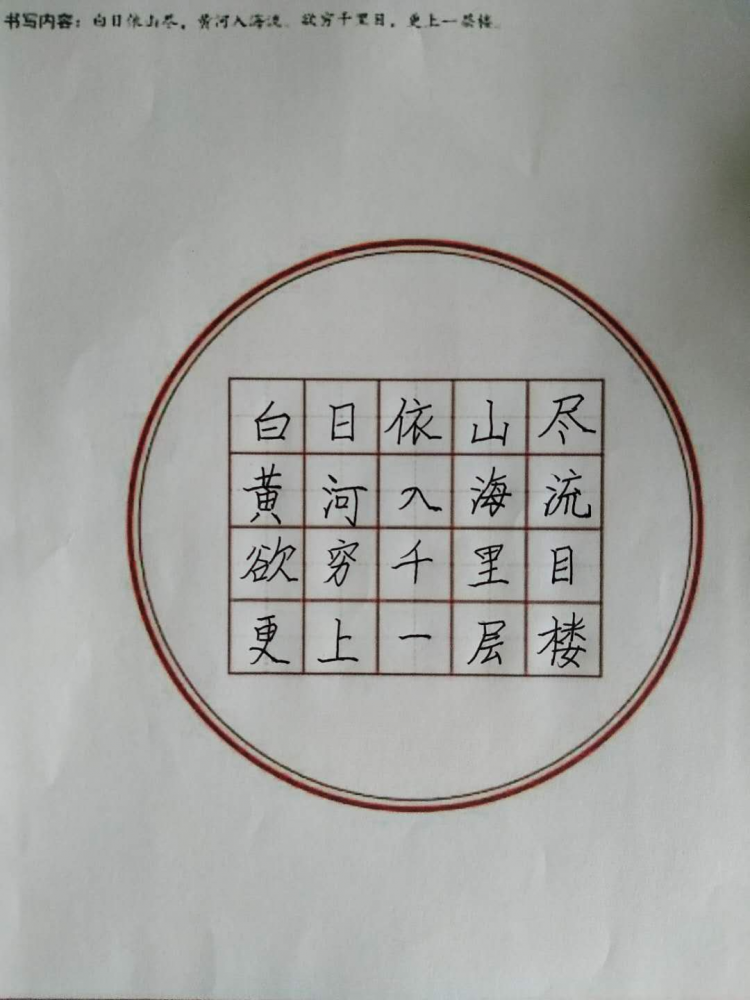 书写内容：白日依山尽，黄河入海流。欲穷千里目，更上一层楼。
白日依山尽
黄河入海流
欲穷千里目
更上一层楼